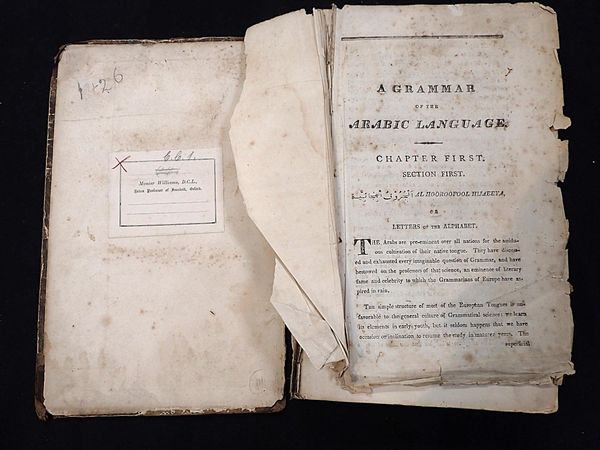 E.C.1.
Monier Williams, D.C.L.,
Boden Professor of Sanskrit, Oxford.
A GRAMMAR
OF THE
ARABIC LANGUAGE.
CHAPTER FIRST.
SECTION FIRST.
الحروف الهجائية AL HOOROOFOOL HIJAEEYA,
OR
LETTERS OF THE ALPHABET.
THE Arabs are pre-eminent over all nations for the assidu-
ous cultivation of their native tongue. They have discuss-
ed and exhausted every imaginable question of Grammar, and have
bestowed on the professors of that science, an eminence of literary
fame and celebrity to which the Grammarians of Europe have as-
pired in vain.
THE simple structure of most of the European Tongues is un-
favorable to the general culture of Grammatical science: we learn
its elements in early youth, but it seldom happens that we have
occasion or inclination to resume the study in maturer years. The
superficial